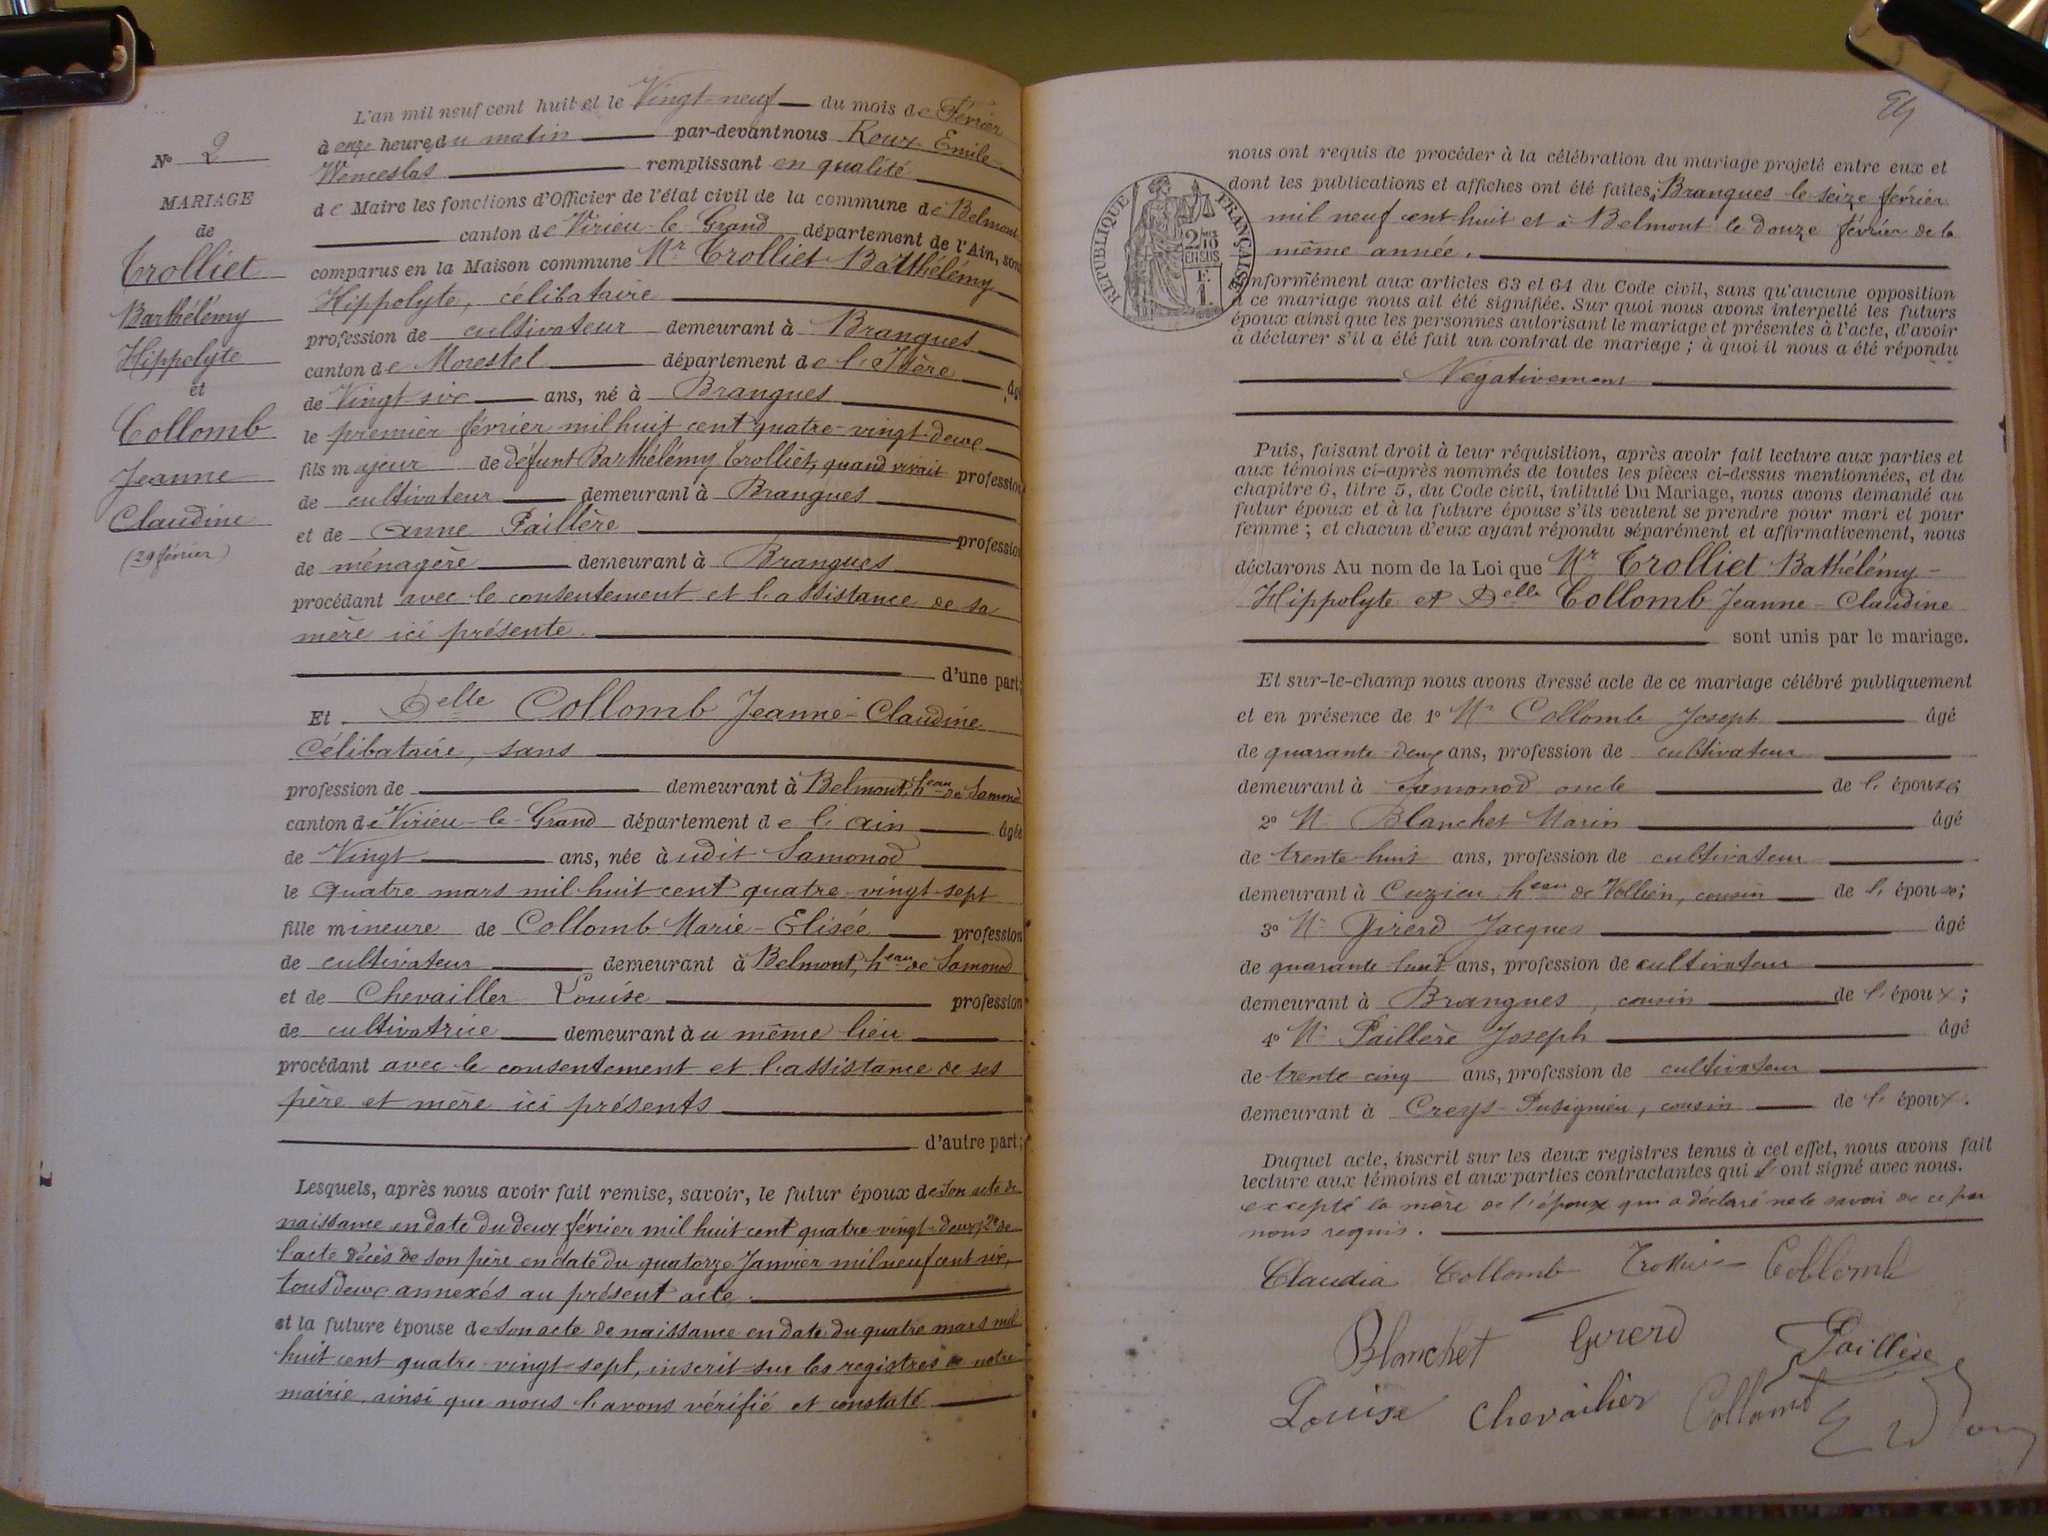 L'an mil neuf cent huit et le Vingt-neuf du mois de Février
à onze heures du matin par-devant nous Roux Emile
Wenceslas remplissant en qualité
de Maire les fonctions d'Officier de l'état civil de la commune de Belmont
canton de Virieu-le-Grand département de l'Ain, sont
comparus en la Maison commune Mr Trolliet Bathélémy
Hippolyte, célibataire
profession de cultivateur demeurant à Brangues
canton de Morestel département de l'Isère âgé
de Vingt-six ans, né à Brangues
le premier février mil huit cent quatre-vingt-deux
fils majeur de défunt Barthélémy Trolliet, quand vivait profession
de cultivateur demeurant à Brangues
et de Anne Paillère profession
de ménagère demeurant à Brangues
procédant avec le consentement et l'assistance de sa
mère ici présente
d'une part;
Et Delle Collomb Jeanne-Claudine
Célibataire, sans
profession de demeurant à Belmont, heau de Samonod
canton de Virieu-le-Grand département de l'Ain âgée
de Vingt ans, née à udit Samonod
le quatre mars mil-huit-cent quatre-vingt-sept
fille mineure de Collomb Marie-Elisée profession
de cultivateur demeurant à Belmont, heau de Samonod
et de Chevailler Louise profession
de cultivatrice demeurant à u même lieu
procédant avec le consentement et l'assistance de ses
père et mère ici présents
d'autre part;
Lesquels, après nous avoir fait remise, savoir, le futur époux de son acte de
naissance en date du deux février mil huit cent quatre-vingt-deux, 2° de
l'acte décès de son père en date du quatorze Janvier mil neuf cent six,
tous deux annexés au présent acte.
et la future épouse de son acte de naissance en date du quatre mars mil
huit cent quatre-vingt-sept, inscrit sur les registres de notre
mairie, ainsi que nous l'avons vérifié et constaté
N° 2
MARIAGE
de
Trolliet
Barthélémy
Hippolyte
et
Collomb
Jeanne
Claudine
(29 février)
nous ont requis de procéder à la célébration du mariage projeté entre eux et
dont les publications et affiches ont été faites à Brangues le seize février
mil neuf cent-huit et à Belmont le douze février de la
même année.
RÉPUBLIQUE FRANÇAISE
2/10
EN SUS
F.
1.
Conformément aux articles 63 et 64 du Code civil, sans qu'aucune opposition
à ce mariage nous ait été signifiée. Sur quoi nous avons interpellé les futurs
époux ainsi que les personnes autorisant le mariage et présentes à l'acte, d'avoir
à déclarer s'il a été fait un contrat de mariage ; à quoi il nous a été répondu
Négativement
Puis, faisant droit à leur réquisition, après avoir fait lecture aux parties et
aux témoins ci-après nommés de toutes les pièces ci-dessus mentionnées, et du
chapitre 6, titre 5, du Code civil, intitulé Du Mariage, nous avons demandé au
futur époux et à la future épouse s'ils veulent se prendre pour mari et pour
femme ; et chacun d'eux ayant répondu séparément et affirmativement, nous
déclarons Au nom de la Loi que Mr Trolliet Bathélémy-
Hippolyte et Delle Collomb Jeanne-Claudine
sont unis par le mariage.
Et sur-le-champ nous avons dressé acte de ce mariage célébré publiquement
et en présence de 1° Mr Collomb Joseph âgé
de quarante-deux ans, profession de cultivateur
demeurant à Samonod oncle de l'épouse;
2° Mr Blanchet Marin âgé
de trente-huit ans, profession de cultivateur
demeurant à Cuzieu heau de Vollien, cousin de l'épouse;
3° Mr Girerd Jacques âgé
de quarante-huit ans, profession de cultivateur
demeurant à Brangues, cousin de l'époux;
4° Mr Paillère Joseph âgé
de trente cinq ans, profession de cultivateur
demeurant à Creys-Pusignieu, cousin de l'époux.
Duquel acte, inscrit sur les deux registres tenus à cet effet, nous avons fait
lecture aux témoins et aux parties contractantes qui l'ont signé avec nous.
excepté la mère de l'époux qui a déclaré ne le savoir de ce par
nous requis.
Claudia Collomb Trolliet Collomb
Blanchet Girerd Paillère
Louise Chevailier Collomb